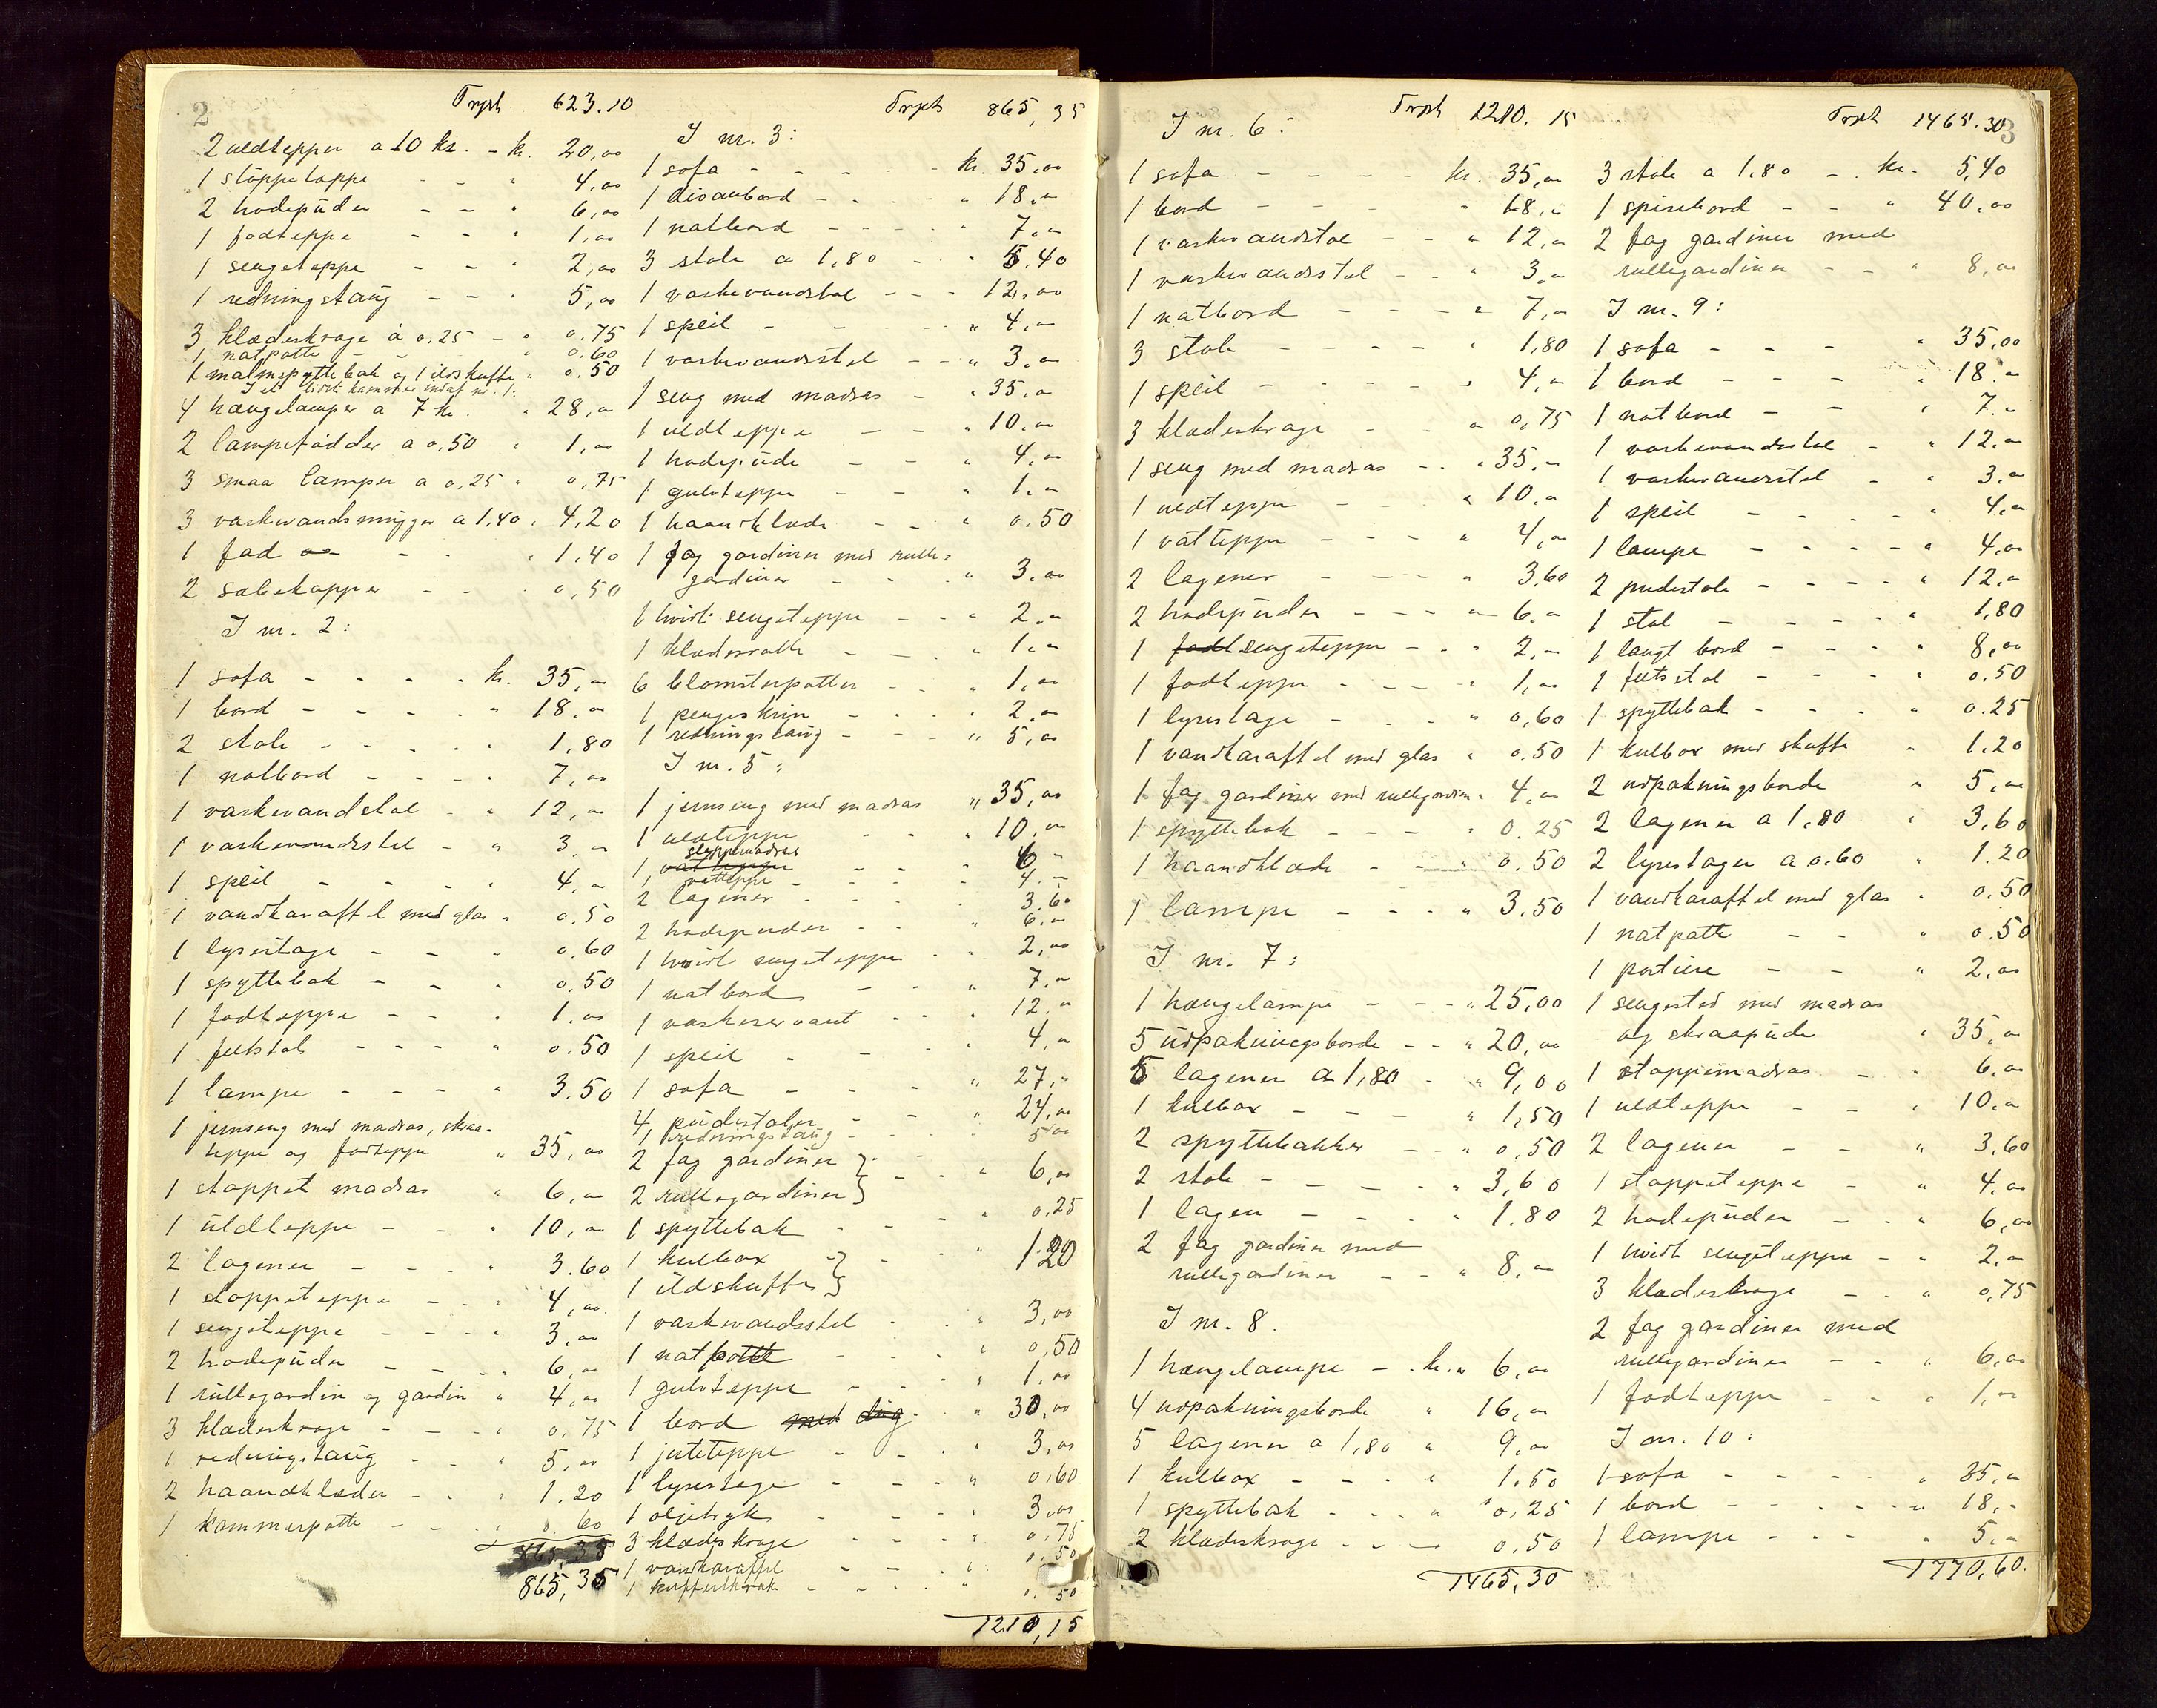 2
Trpt 623.10
2 uldtepper a 10 kr. - kr. 20,00
1 stoppeteppe - - " 4,00
2 hodepuder - - " 6,00
1 fodteppe - - " 1,00
1 sengeteppe - - " 2,00
1 redningstaug - - " 5,00
3 klædeskroge à 0.25 - " 0.75
1 natpotte - " 0.60
1 malmspyttebak og 1 ildskuffe " 0.50
I et lidet kammer indaf nr. 1:
4 hængelamper a 7 kr. " 28,00
2 lampefødder a 0.50 " 1,00
3 smaa lamper a 0,25 " 0,75
3 vaskevandsmugger a 1,40 " 4,20
1 fad - - " 1,40
2 sæbekopper - - " 0,50
I nr. 2:
1 sofa - - - - kr. 35,00
1 bord - - - - " 18.00
2 stole - - - - " 1,80
1 natbord - - - - " 7,00
1 vaskevandstol - " 12,00
1 vaskevandsstel - " 3,00
1 speil - - - - " 4,00
1 vandkaraffel med glas " 0.50
1 lysestage - - - " 0.60
1 spyttebak - - - " 0.50
1 fodteppe - - " 1.00
1 feltstol - - - " 0.50
1 lampe - - - - " 3.50
1 jernseng med madras, skraa-
teppe og fodteppe " 35,00
1 stoppet madras " 6,00
1 uldteppe - - " 10,00
2 lagener - - - " 3.60
1 stoppeteppe - - " 4,00
1 sengeteppe - - - " 3,00
2 hodepuder - - - " 6,00
1 rullegardin og gardin " 4,00
3 klædeskroge - - - " 0,75
1 redningstaug - - " 5,00
2 haandklæder - - " 1.20
1 kammerpotte - - " 0.60
865,35
Trpt 865,35
I nr. 3:
1 sofa - - - - - kr. 35,00
1 divanbord - - - - " 18.00
1 natbord - - - - 7.00
3 stole a 1,80 - " 5.40
1 vaskevandstol - - - 12,00
1 speil - - - " 4,00
1 vaskevandsstel - - " 3.00
1 seng med madras - " 35.00
1 uldteppe - - " 10.00
1 hodepude - - " 4,00
1 gulvteppe - - " 1.00
1 haandklæde - - " 0.50
1 fag gardiner med rulle=
gardiner - - " 3.00
1 hvidt sengeteppe - - " 2.00
1 klædesrulle - - " 1.00
6 blomsterpotter - - " 1,00
1 pengeskrin - - " 2.00
1 redningstaug - - - " 5,00
I nr. 5:
1 jernseng med madras " 35,00
1 uldteppe - - " 10,00
stoppemadras
1 vatteppe - - " 6 -
vatteppe - - " 4.-
2 lagener - - - 3.60
2 hodepuder - - " 6.00
1 hvidt sengeteppe - - 2,00
1 natbord - - " 7.00
1 vaskeservant - - " 12.00
1 speil - - - 4,00
1 sofa - - - " 27,-
4 pudestoler - - " 24,00
1 redningstaug - - 5,00
2 fag gardiner }
2 rullegardiner } - - " 6,00
1 spyttebak - - " 0,25
1 kulbox }
1 ildskuffe } - " 1.20
1 vaskevandsstel - " 3,00
1 natpotte - - " 0,50
1 gulvteppe - - " 1.00
1 bord med dug - " 30,00
1 juteteppe - - " 3,00
1 lysestage - - - " 0,60
1 oljetryk - - - 3,00
3 klædeskroge - - - " 0,75
1 vandkaraffel - - " 0.50
1 kuffertkrak - - - " 0.50
1210,15
Trpt 1210.15
I nr. 6:
1 sofa - - - - kr. 35,00
1 bord - - - - " 18,00
1 vaskevandstol - - " 12,00
1 vaskevandsstel - - " 3,00
1 natbord - - - - " 7,00
3 stole - - - - " 1,80
1 speil - - - - " 4,00
3 klædeskroge - - " 0,75
1 seng med madras - - " 35,-
1 uldteppe - - - " 10,00
1 vatteppe - - - " 4,00
2 lagener - - - " 3,60
2 hodepuder - - - " 6.00
1 fodt sengeteppe - - " 2,-
1 fodteppe - - - - " 1,00
1 lysestage - - - " 0,60
1 vandkaraffel med glas " 0.50
1 fag gardiner med rullegardin " 4,00
1 spyttebak - - - - " 0.25
1 haandklæde - - - " 0.50
1 lampe - - - " 3.50
I nr. 7:
1 hængelampe - - - " 25,00
5 udpakningsborde - - " 20,00
5 lagener a 1,80 - " 9,00
1 kulbox - - - " 1,50
2 spyttebakker - - " 0,50
2 stole - - - - " 3,60
1 lagen - - - - " 1.80
2 fag gardiner med
rullegardiner - - " 8,00
I nr. 8.
1 hængelampe - - kr. " 6,00
4 udpakningsborde " 16,00
5 lagener a 1,80 " 9,00
1 kulbox - - - " 1.50
1 spyttebak - - - " 0,25
2 klædeskroge - - - 0.50
1465,30
3
Trpt 1465.30
3 stole a 1.80 - kr. 5,40
1 spisebord - - " 40,00
2 fag gardiner med
rullegardiner - - " 8,00
I nr. 9:
1 sofa - - - " 35,00
1 bord - - - " 18.00
1 natbord - - " 7.00
1 vaskevandsstol - " 12.00
1 vaskevandsstel - " 3.00
1 speil - - - - " 4,00
1 lampe - - - - " 4,00
2 pudestole - - - - " 12.00
1 stol - - - - " 1,80
1 langt bord - - - " 8,00
1 feltstol - - - " 0.50
1 spyttebak - - - " 0.25
1 kulbox med skuffe " 1.20
2 udpakningsborde " 5,00
2 lagener a 1,80 " 3,60
2 lysestager a 0.60 " 1.20
1 vandkaraffel med glas " 0.50
1 natpotte - - " 0.50
1 portiere - - " 2,00
1 sengested med madras
og skraapude " 35,00
1 stoppemadras - - " 6,00
1 uldteppe - - " 10.00
2 lagener - - " 3,60
1 stoppeteppe - " 4,00
2 hodepuder - - " 6,00
1 hvidt sengeteppe - " 2,00
3 klædeskroge - - " 0,75
2 fag gardiner med
rullegardiner - - " 6,00
1 fodteppe - - - " 1,-
I nr. 10:
1 sofa - - - - " 35,00
1 bord - - - - " 18.-
1 lampe - - - " 5.00
1770,60.